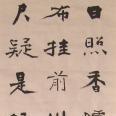 日照香爐
布挂前川
尺疑是